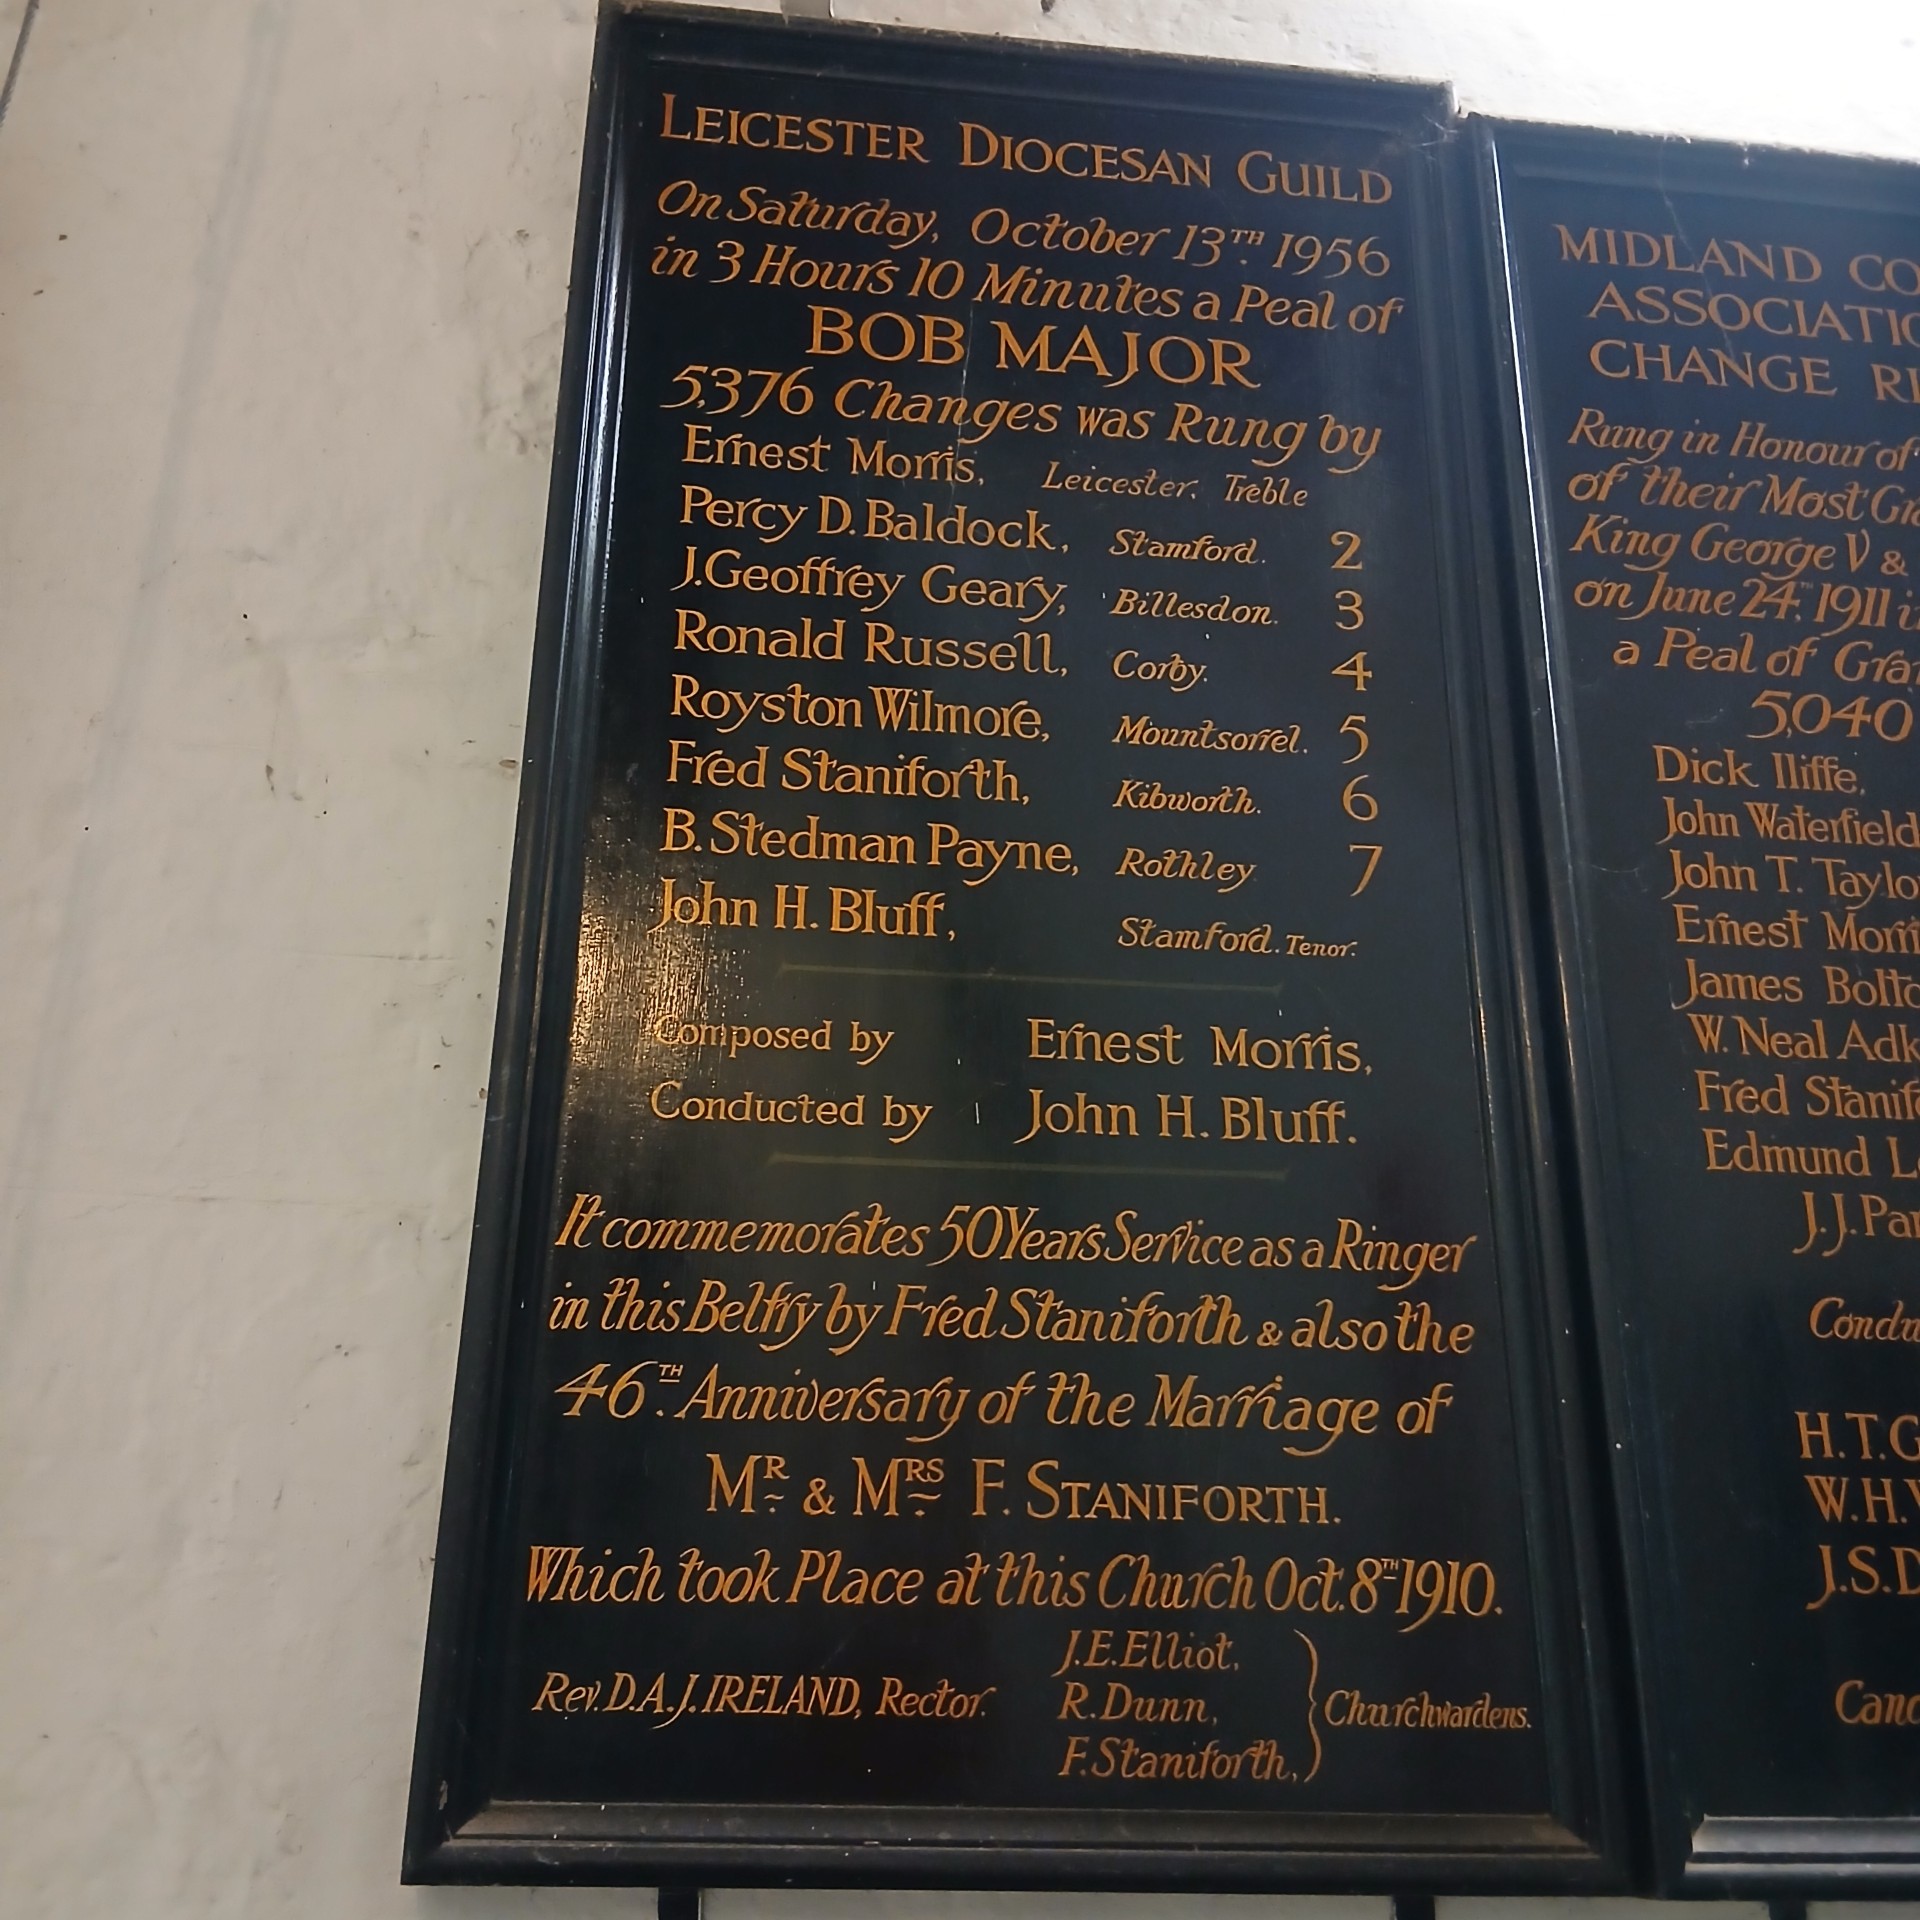 LEICESTER DIOCESAN GUILD
On Saturday, October 13TH 1956
in 3 Hours 10 Minutes a Peal of
BOB MAJOR
5,376 Changes was Rung by
Ernest Morris, Leicester. Treble
Percy D. Baldock, Stamford. 2
J. Geoffrey Geary, Billesdon. 3
Ronald Russell, Corby. 4
Royston Wilmore, Mountsorrel. 5
Fred Staniforth, Kibworth. 6
B. Stedman Payne, Rothley 7
John H. Bluff, Stamford. Tenor.
Composed by Ernest Morris,
Conducted by John H. Bluff.
It commemorates 50 Years Service as a Ringer
in this Belfry by Fred Staniforth & also the
46TH Anniversary of the Marriage of
MR & MRS F. STANIFORTH.
Which took Place at this Church Oct. 8TH 1910.
Rev. D.A.J. IRELAND, Rector.
J.E. Elliot,
R. Dunn,
F. Staniforth,
Churchwardens.
MIDLAND
CHANGE
Rung in Honour of
of their Most
King George V &
on June 24TH 1911
a Peal of
5,040
Dick Iliffe,
John Waterfield
John T.
Ernest
James
W. Neal
Fred
Edmund
J.J.